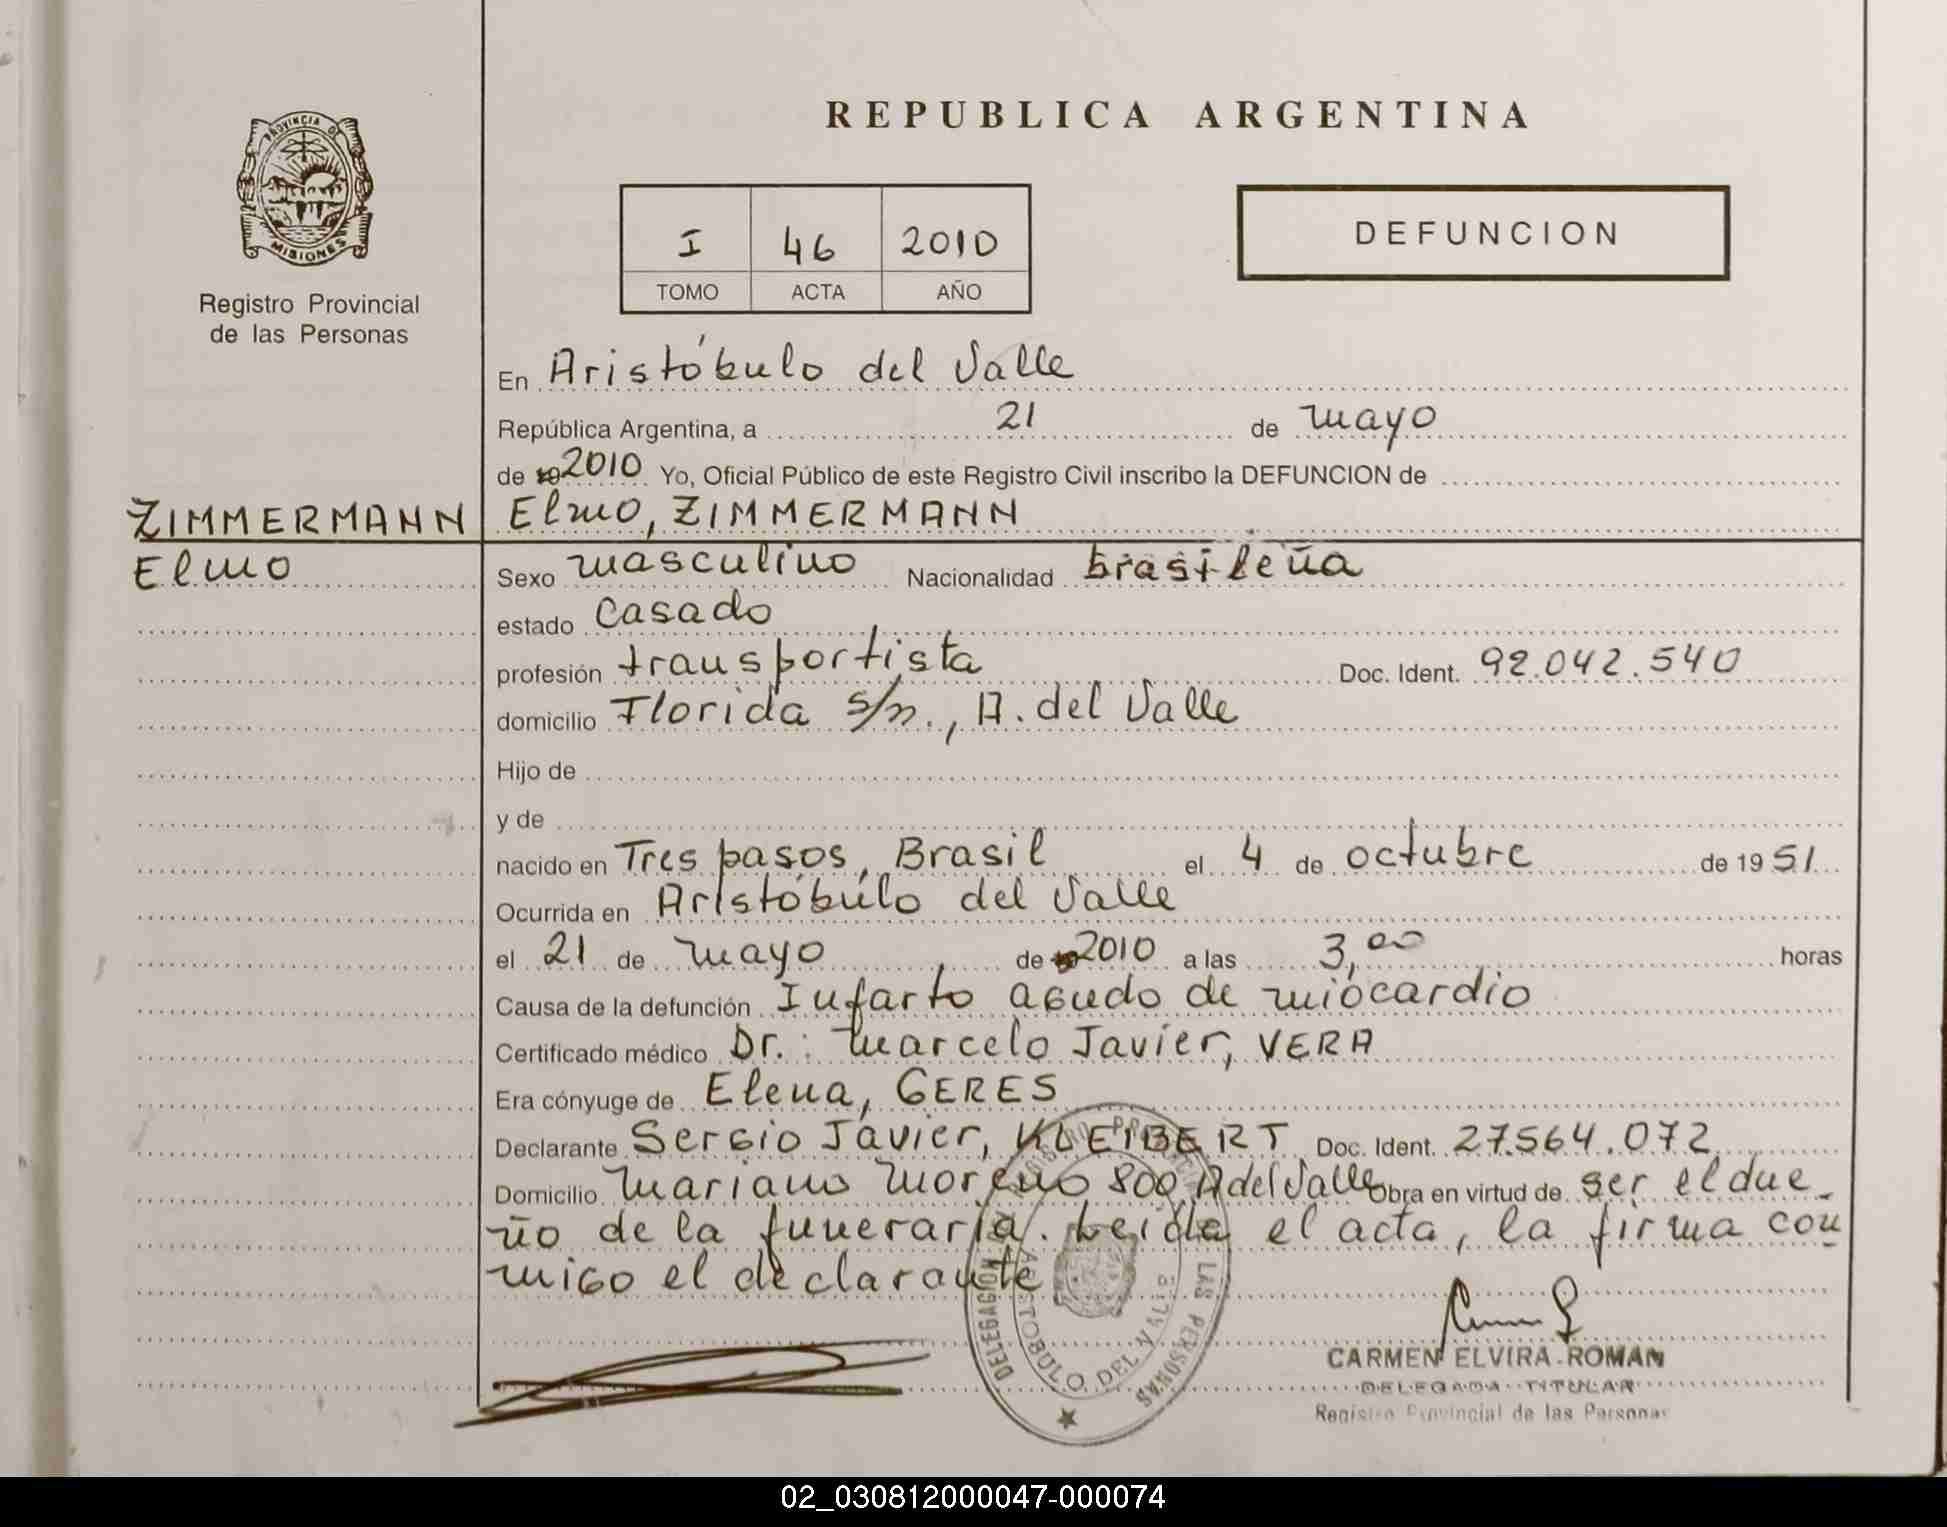 REPUBLICA ARGENTINA
PROVINCIA D
MISIONES
Registro Provincial
de las Personas
I 46 2010
TOMO ACTA AÑO
DEFUNCION
En Aristóbulo del Valle
República Argentina, a 21 de mayo
de 2010 Yo, Oficial Público de este Registro Civil inscribo la DEFUNCION de
ZIMMERMANN Elmo, ZIMMERMANN
Elmo
Sexo masculino Nacionalidad brasileña
estado Casado
profesión transportista Doc. Ident. 92.042.540
domicilio Florida s/n., A. del Valle
Hijo de
y de
nacido en Tres pasos, Brasil el 4 de octubre de 1951
Ocurrida en Aristóbulo del Valle
el 21 de mayo de 2010 a las 3,00 horas
Causa de la defunción Infarto agudo de miocardio
Certificado médico Dr.: Marcelo Javier, VERA
Era cónyuge de Elena, GERES
Declarante Sergio Javier, KLEIBERT Doc. Ident. 27.564.072
Domicilio Mariano Moreno 800 A del Valle Obra en virtud de ser el due
ño de la funeraria. Leída el acta, la firma con
migo el declarante
DELEGACION LAS PERSONAS
ARISTOBULO DEL VALLE
CARMEN ELVIRA ROMAN
DELEGADA TITULAR
Registro Provincial de las Personas
02_030812000047-000074